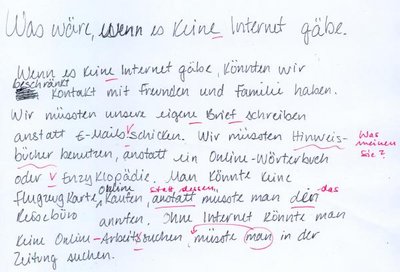 Was wäre, wenn es keine Internet gäbe.
Wenn es keine Internet gäbe, könnten wir
beschränkt
Kontakt mit Freunden und familie haben.
Wir müssten unsere eigene Brief schreiben
anstatt E-Mails schicken. Wir müssten Hinweis-
bücher benutzen, anstatt ein Online-Wörterbuch
oder Enzyklopädie. Man könnte keine
Flugzugkarte online kaufen, anstatt musste man den
statt dessen,
das
Reisebüro annten. Ohne Internet könnte man
keine Online-Arbeitsuchen, müsste man in der
Zeitung suchen.
Was
meinen
Sie?